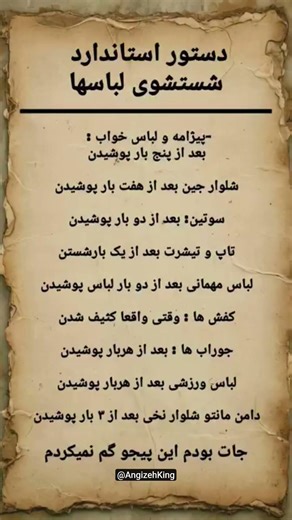 دستور استاندارد
شستشوی لباسها
-پیژامه و لباس خواب :
بعد از پنج بار پوشیدن
شلوار جین بعد از هفت بار پوشیدن
سوتین: بعد از دو بار پوشیدن
تاپ و تیشرت بعد از یک بارشستن
لباس مهمانی بعد از دو بار لباس پوشیدن
کفش ها : وقتی واقعا کثیف شدن
جوراب ها : بعد از هربار پوشیدن
لباس ورزشی بعد از هربار پوشیدن
دامن مانتو شلوار نخی بعد از ۳ بار پوشیدن
جات بودم این پیجو گم نمیکردم
@AngizehKing